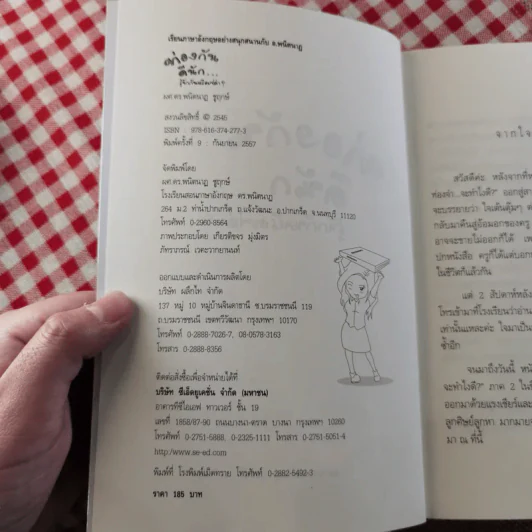 เรียนภาษาอังกฤษอย่างสนุกสนานกับ ด.พนิตนาฏ
ท่องกัน
ดีนัก...
ผศ.ดร.พนิตนาฏ ชูฤกษ์
สงวนลิขสิทธิ์ © 2545
ISBN : 978-616-374-277-3
พิมพ์ครั้งที่ 9 : กันยายน 2557
จัดพิมพ์โดย
ผศ.ดร.พนิตนาฏ ชูฤกษ์
โรงเรียนสอนภาษาอังกฤษ ดร.พนิตนาฏ
264 ม.2 ท่าน้ำปากเกร็ด ถ.แจ้งวัฒนะ อ.ปากเกร็ด จ.นนทบุรี 11120
โทรศัพท์ 0-2960-8564
ภาพประกอบโดย เกียรติขจร มุ่งมิตร
ภัทราภรณ์ เวคะวากยานนท์
ออกแบบและดำเนินการผลิตโดย
บริษัท ผลึกไท จำกัด
137 หมู่ 10 หมู่บ้านจินดาธานี ซ.บรมราชชนนี 119
ถ.บรมราชชนนี เขตทวีวัฒนา กรุงเทพฯ 10170
โทรศัพท์ 0-2888-7026-7, 08-0578-3163
โทรสาร 0-2888-8356
ติดต่อสั่งซื้อเพื่อจำหน่ายได้ที่
บริษัท ซีเอ็ดยูเคชั่น จำกัด (มหาชน)
อาคารทีซีไอเอฟ ทาวเวอร์ ชั้น 19
เลขที่ 1858/87-90 ถนนบางนา-ตราด บางนา กรุงเทพฯ 10260
โทรศัพท์ 0-2751-5888, 0-2325-1111 โทรสาร 0-2751-5051-4
http://www.se-ed.com
พิมพ์ที่ โรงพิมพ์เม็ดทราย โทรศัพท์ 0-2882-5492-3
ราคา 185 บาท
จากใจ
สวัสดีค่ะ หลังจากที่
ท่องจำ...จะทำไงดี?" ออกสู่
จะบรรยายว่า ใจเต้นตุ้มๆ
กลับมาคืนสู่อ้อมอกของครู
อาจจะขายไม่ออกก็ได้
ปกหนังสือ ครูก็ได้แต่
ในชีวิตก็แล้วกัน
แต่ 2 สัปดาห์หลัง
โทรเข้ามาที่โรงเรียนว่าอ่าน
เท่านั้นแหละค่ะ ใจมา
ซ้ำอีก
จนมาถึงวันนี้
จะทำไงดี?" ภาค 2
ออกมาด้วยแรงเชียร์และ
ลูกศิษย์ลูกหา มากมาย
มา ณ ที่นี้